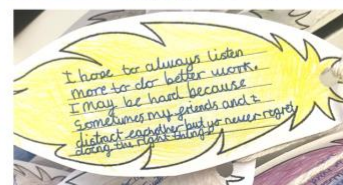 I hope to always listen
more to do better work.
I may be hard because
Sometimes my friends and I
distract eachother but yo never regret
doing the right thing